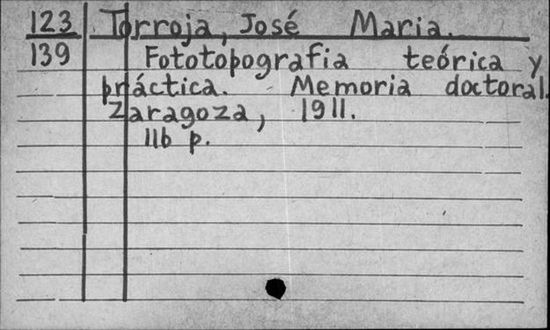 123 Torroja, José Maria.
139 Fototopografia teórica y
práctica. Memoria doctoral.
Zaragoza, 1911.
116 p.